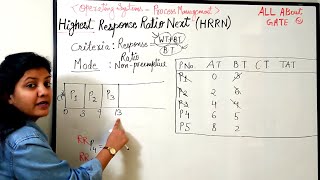 (Operating System - Process Management)
ALL About
GATE
Highest Response Ratio Next (HRRN)
Criteria: Response Ratio
WT+BT
BT
Mode : Non-preemptive
P.No. A T B T C T TAT
P1 0 3
P2 2 6
P3 4 4
P4 6 5
P5 8 2
P1 P2 P3
0 3 9 13
RR
RR